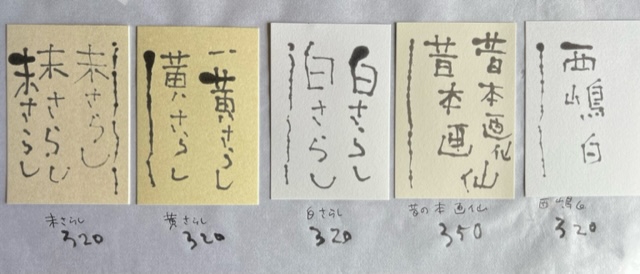 未さらし
未さらし
未さらし
黄さらし
黄さらし
白さらし
白さらし
昔本画仙
昔本画仙
西嶋白
未さらし
320
黄さらし
320
白さらし
320
昔の本画仙
350
西嶋白
320